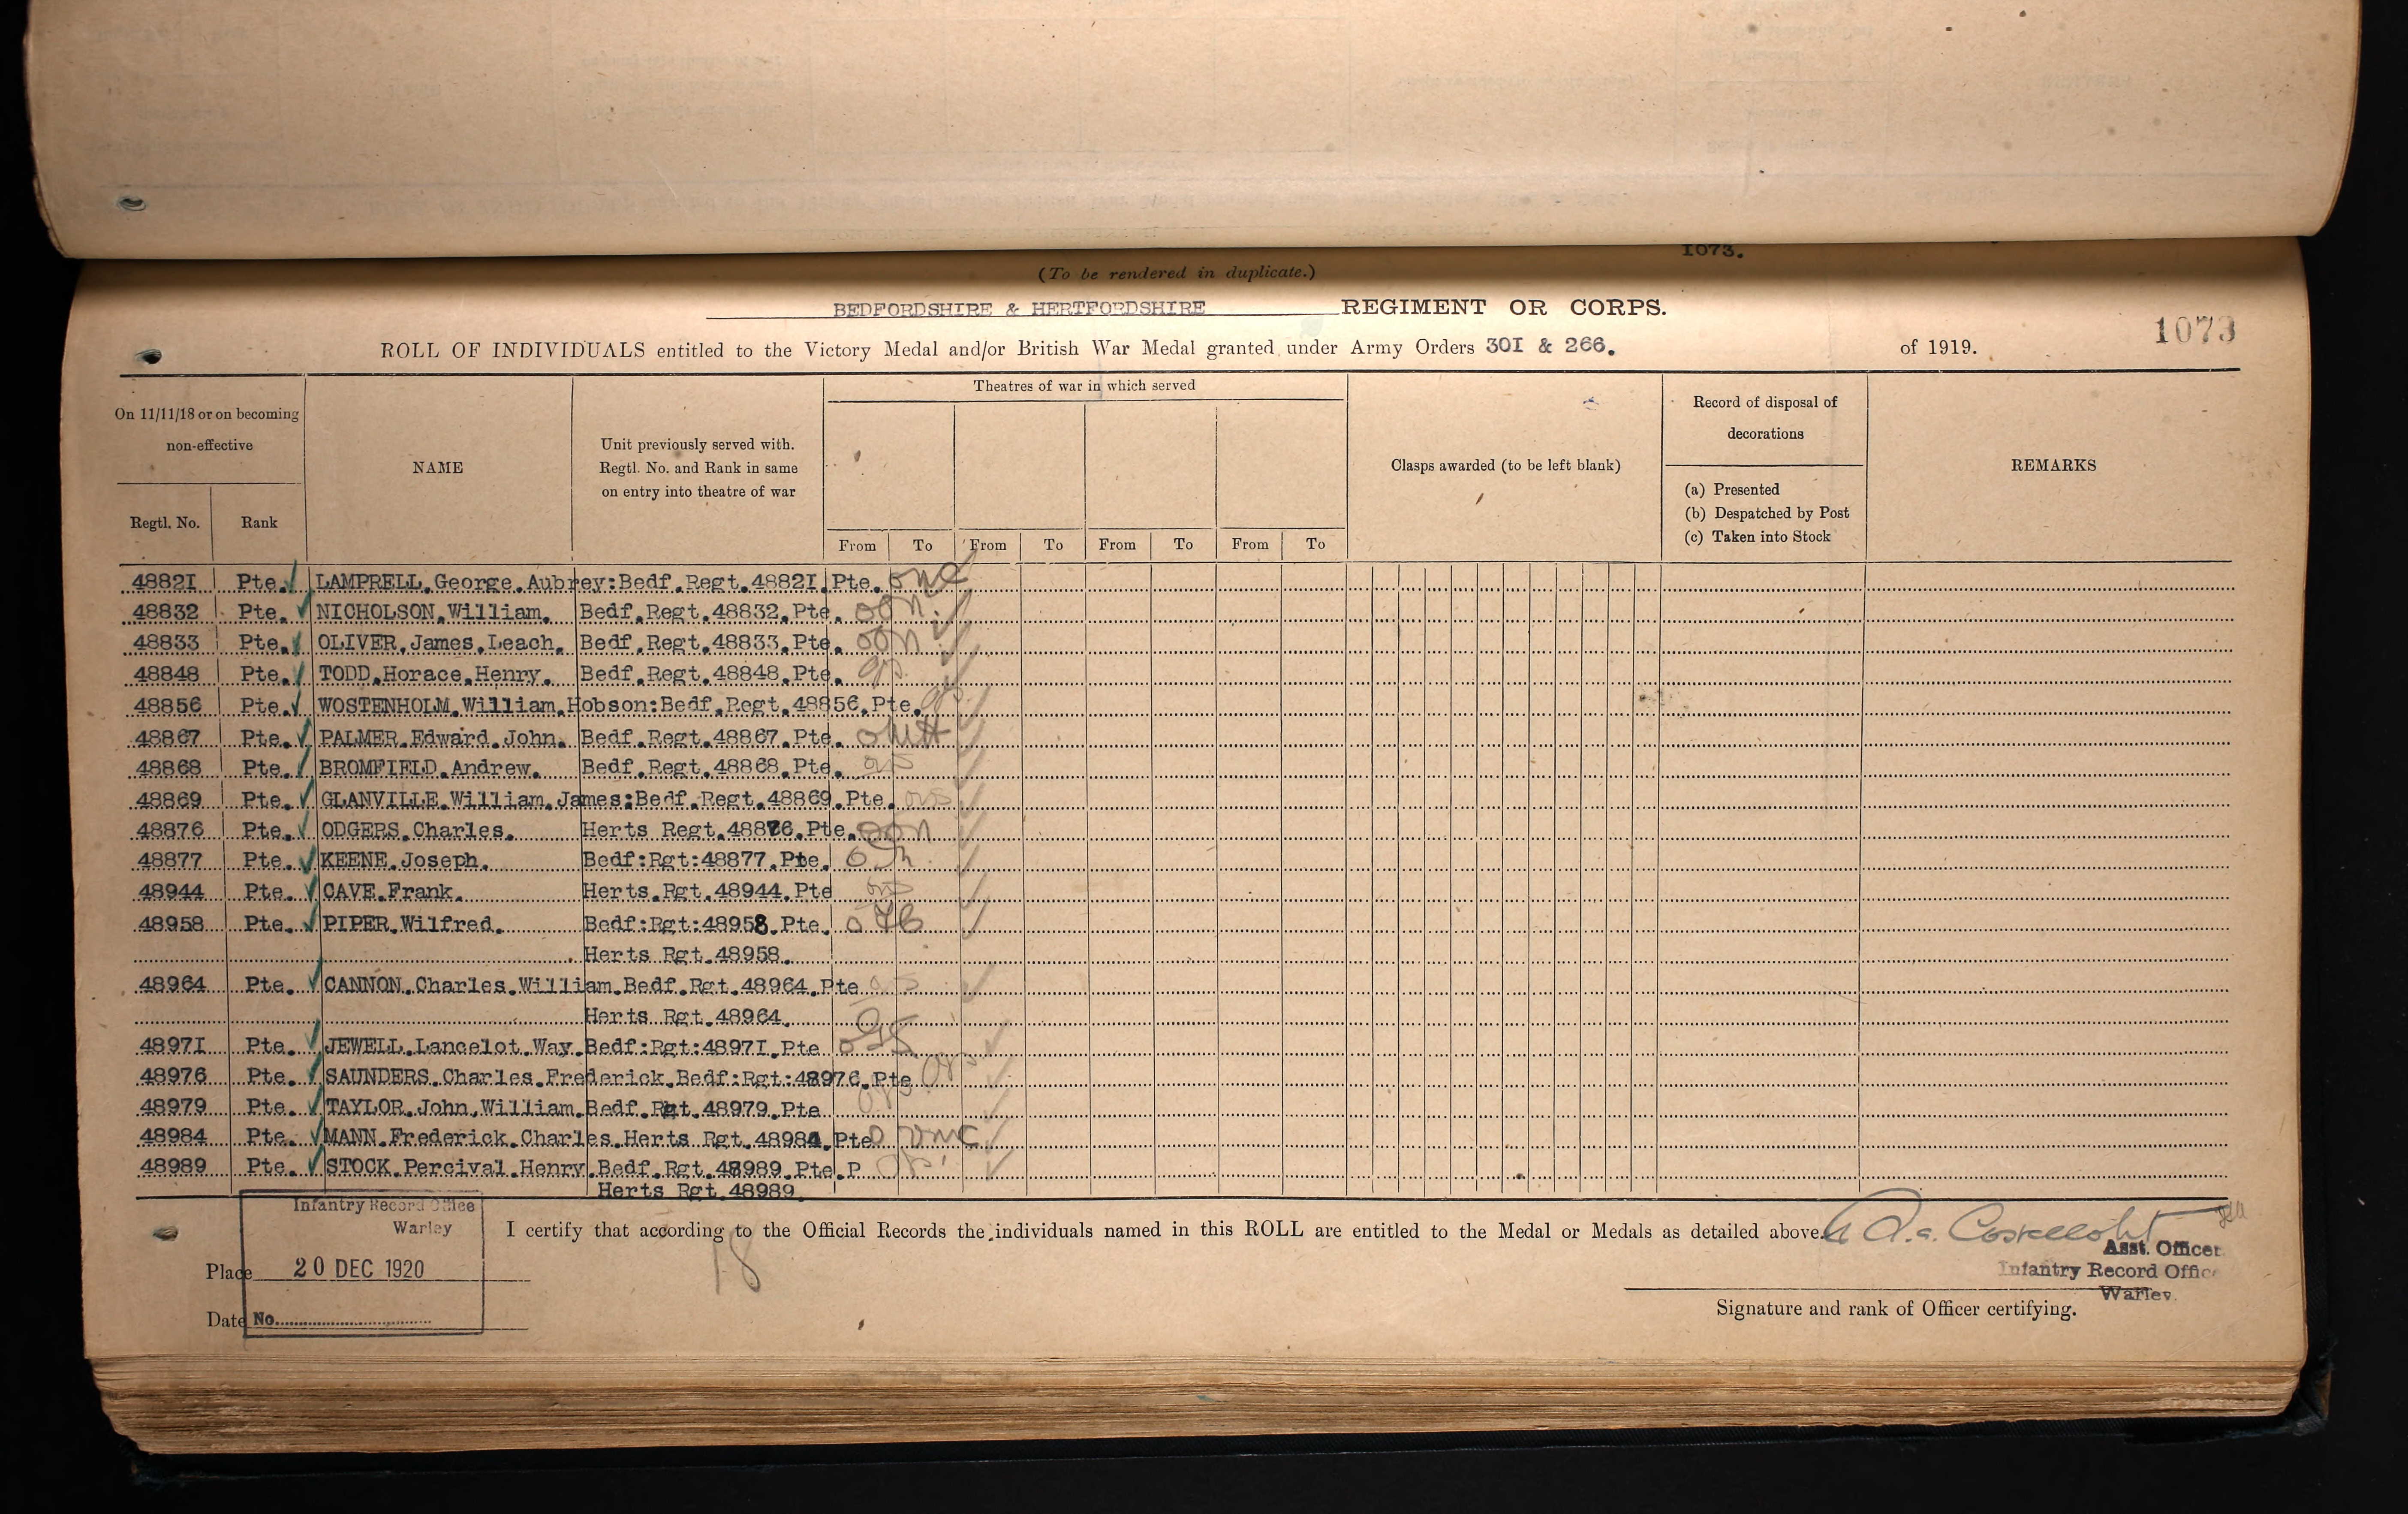 1073.
(To be rendered in duplicate.)
BEDFORDSHIRE & HERTFORDSHIRE REGIMENT OR CORPS.
1073
ROLL OF INDIVIDUALS entitled to the Victory Medal and/or British War Medal granted under Army Orders 301 & 266. of 1919.
On 11/11/18 or on becoming non-effective
Regtl. No.
Rank
NAME
Unit previously served with.
Regtl. No. and Rank in same
on entry into theatre of war
Theatres of war in which served
From To From To From To From To
Clasps awarded (to be left blank)
Record of disposal of
decorations
(a) Presented
(b) Despatched by Post
(c) Taken into Stock
REMARKS
48821 Pte. LAMPRELL. George. Aubrey: Bedf. Regt. 48821. Pte.
48832 Pte. NICHOLSON. William. Bedf. Regt. 48832. Pte.
48833 Pte. OLIVER. James. Leach. Bedf. Regt. 48833. Pte.
48848 Pte. TODD. Horace. Henry. Bedf. Regt. 48848. Pte.
48856 Pte. WOSTENHOLM. William. Hobson: Bedf. Regt. 48856. Pte.
48867 Pte. PALMER. Edward. John. Bedf. Regt. 48867. Pte.
48868 Pte. BROMFIELD. Andrew. Bedf. Regt. 48868. Pte.
48869 Pte. GLANVILLE. William. James: Bedf. Regt. 48869. Pte.
48876 Pte. ODGERS. Charles. Herts Regt. 48876. Pte.
48877 Pte. KEENE. Joseph. Bedf:Rgt:48877. Pte.
48944 Pte. CAVE. Frank. Herts. Rgt. 48944. Pte
48958 Pte. PIPER. Wilfred. Bedf:Rgt:48958. Pte.
Herts Rgt. 48958.
48964 Pte. CANNON. Charles. William. Bedf. Rgt. 48964. Pte
Herts Rgt. 48964.
48971 Pte. JEWELL. Lancelot. Way. Bedf:Rgt:48971. Pte
48976 Pte. SAUNDERS. Charles. Frederick. Bedf:Rgt:48976. Pte
48979 Pte. TAYLOR. John. William. Bedf. Rgt. 48979. Pte
48984 Pte. MANN. Frederick. Charles. Herts Rgt. 48984. Pte
48989 Pte. STOCK. Percival. Henry. Bedf. Rgt. 48989. Pte. P
Herts Rgt. 48989
Infantry Record Office
Warley
I certify that according to the Official Records the individuals named in this ROLL are entitled to the Medal or Medals as detailed above.
18
Asst. Officer
Infantry Record Office
Warley.
Place 20 DEC 1920
Date No.
Signature and rank of Officer certifying.